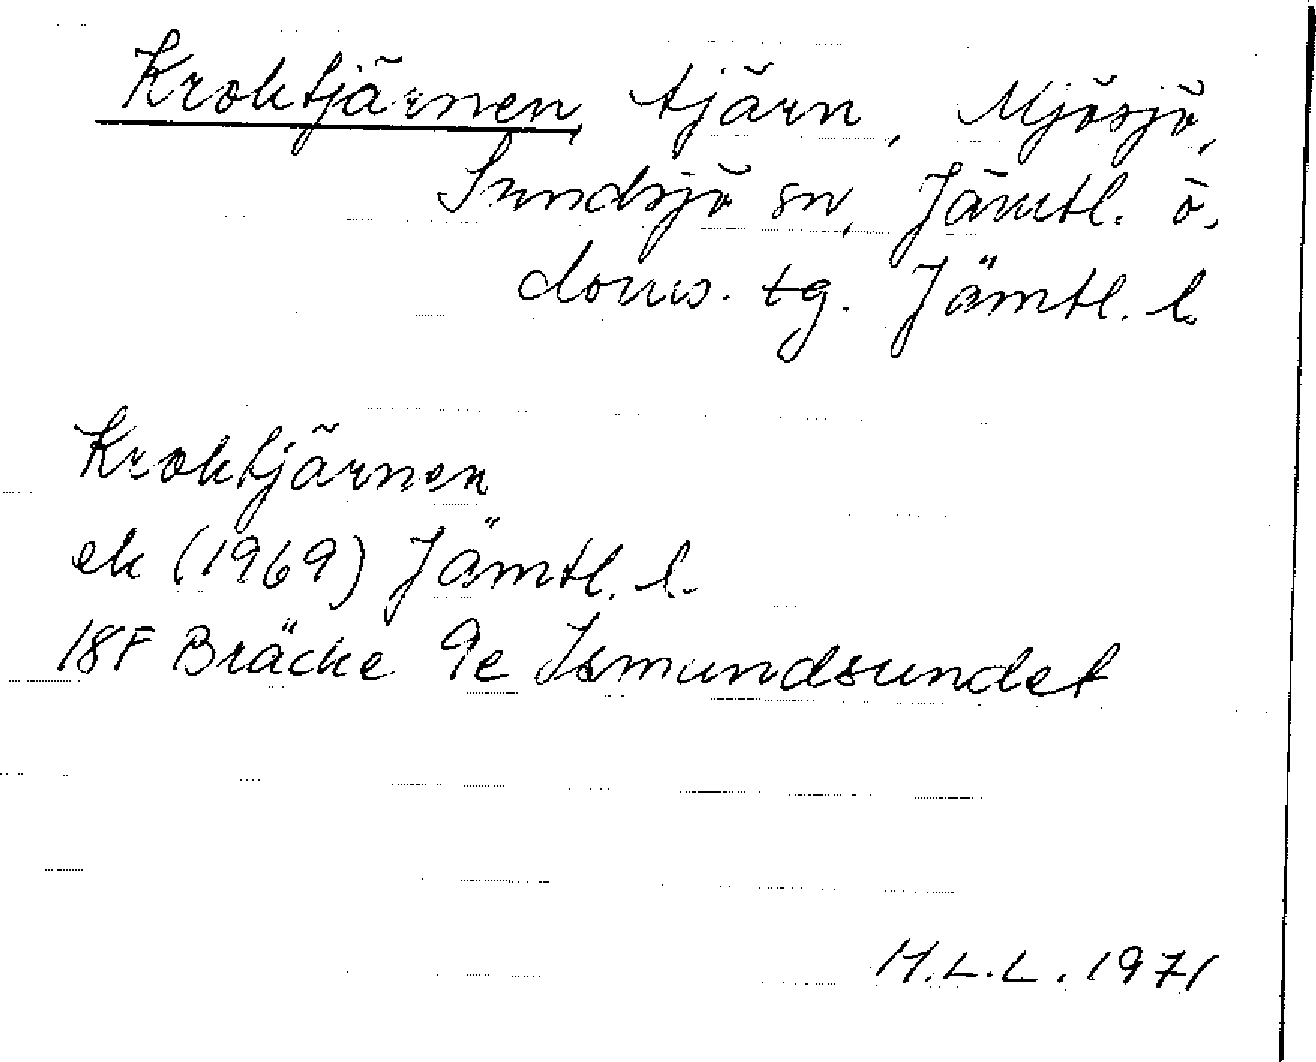 Kroktjärnen, tjärn, Mjösjö,
Sundsjö sn, Jämtl. ö.
doms. tg. Jämtl. l.
Kroktjärnen
ek (1969) Jämtl. l.
18F Bräcke 9e Ismundsundet
H.L.L. 1971